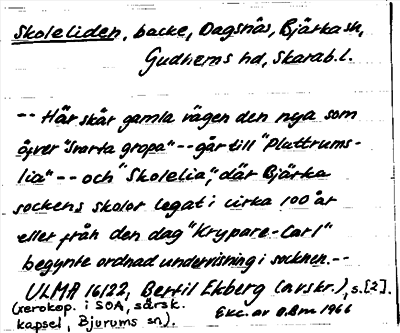 Skoleliden, backe, Dagsnäs, Bjärka sn,
Gudhems hd, Skarab.l.
-- Här skär gamla vägen den nya som
över "Svarta gropa" -- går till "Pluttrums-
lia" -- och "Skolelia", där Bjärka
sockens skolor legat i cirka 100 år
eller från den dag "Krypare-Carl"
begynte ordnad undervisning i socknen. --
ULMA 16122, Bertil Ekberg (avskr.), s. [2].
(xerokop. i SOA, särsk.
kapsel, Bjurums sn).
Exc. av O.Bm 1966